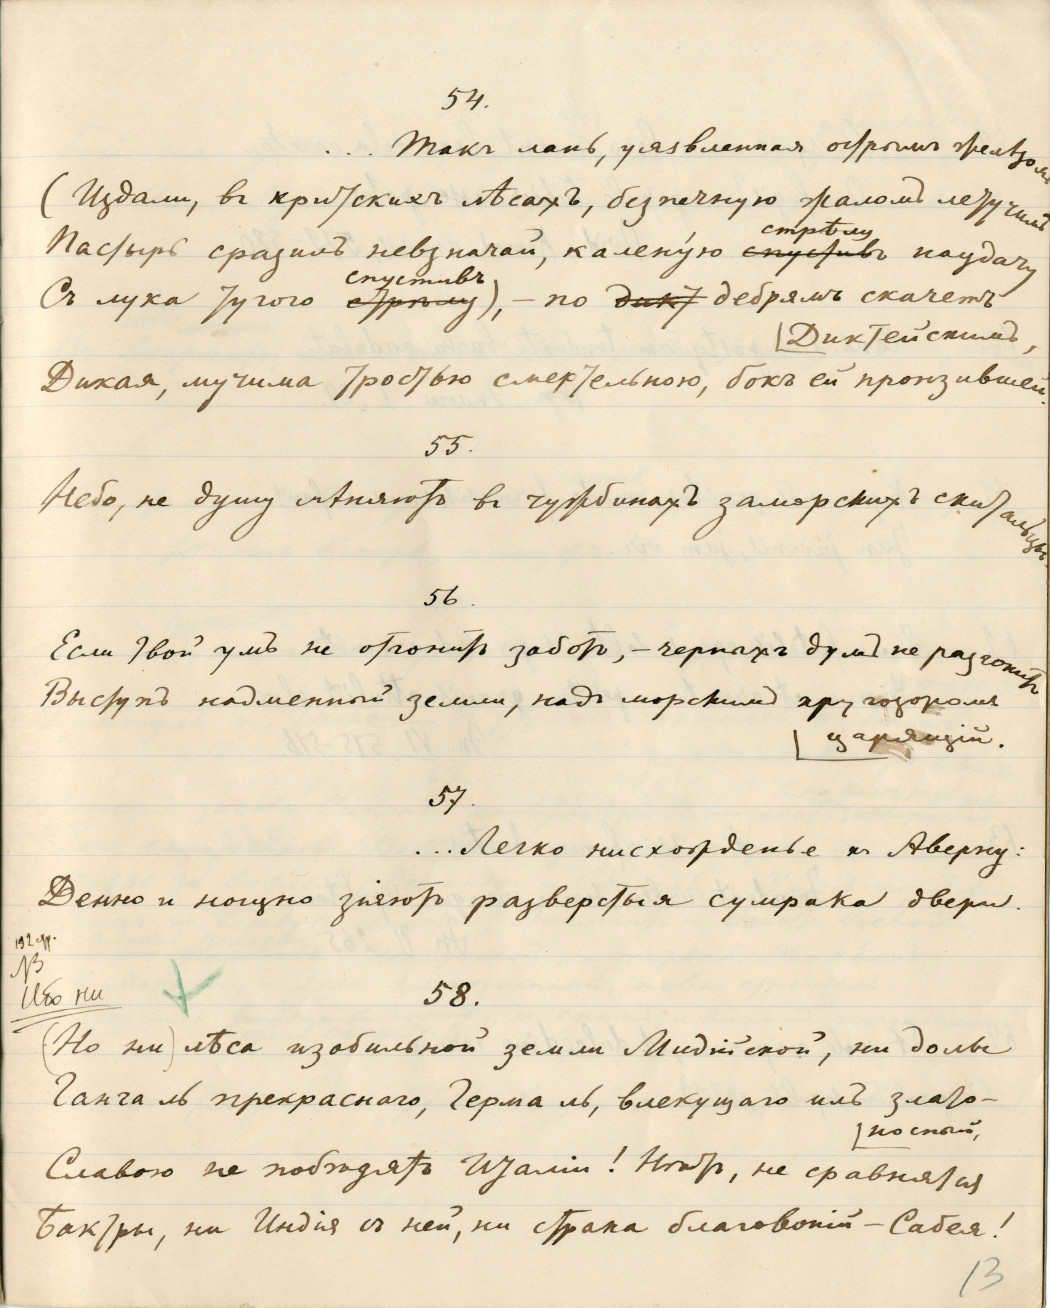 54.
... Такъ лань, уязвленная острымъ желѣзомъ
(Издали, въ критскихъ лѣсахъ, безпечную жаломъ летучимъ
стрѣлу
Пастырь сразилъ невзначай, калену́ю спустивъ наудачу
спустивъ
Съ лука тугого стрѣлу), – по дикт дебрямъ скачетъ
Диктейскимъ,
Дикая, мучима тростью смертельною, бокъ ей пронзившей.
55.
Небо, не душу мѣняютъ въ чужбинахъ заморскихъ скитальцы.
56.
Если твой умъ не отгонитъ заботъ, – черныхъ думъ не разгонитъ
Выступъ надменный земли, надъ морскимъ кругозоромъ
царящій.
57.
...Легко нисхожденье къ Аверну:
Денно и нощно зіяютъ разверстыя сумрака двери.
NB
Ибо ни
58.
(Но ни) лѣса изобильной земли Мидійской, ни долы
Ганга ль прекраснаго, Герма ль, влекущаго илъ злато-
носный,
Славою не побѣдятъ Италіи! Нѣтъ, не сравнятся
Бактры, ни Индія съ ней, ни страна благовоній – Сабея!
13